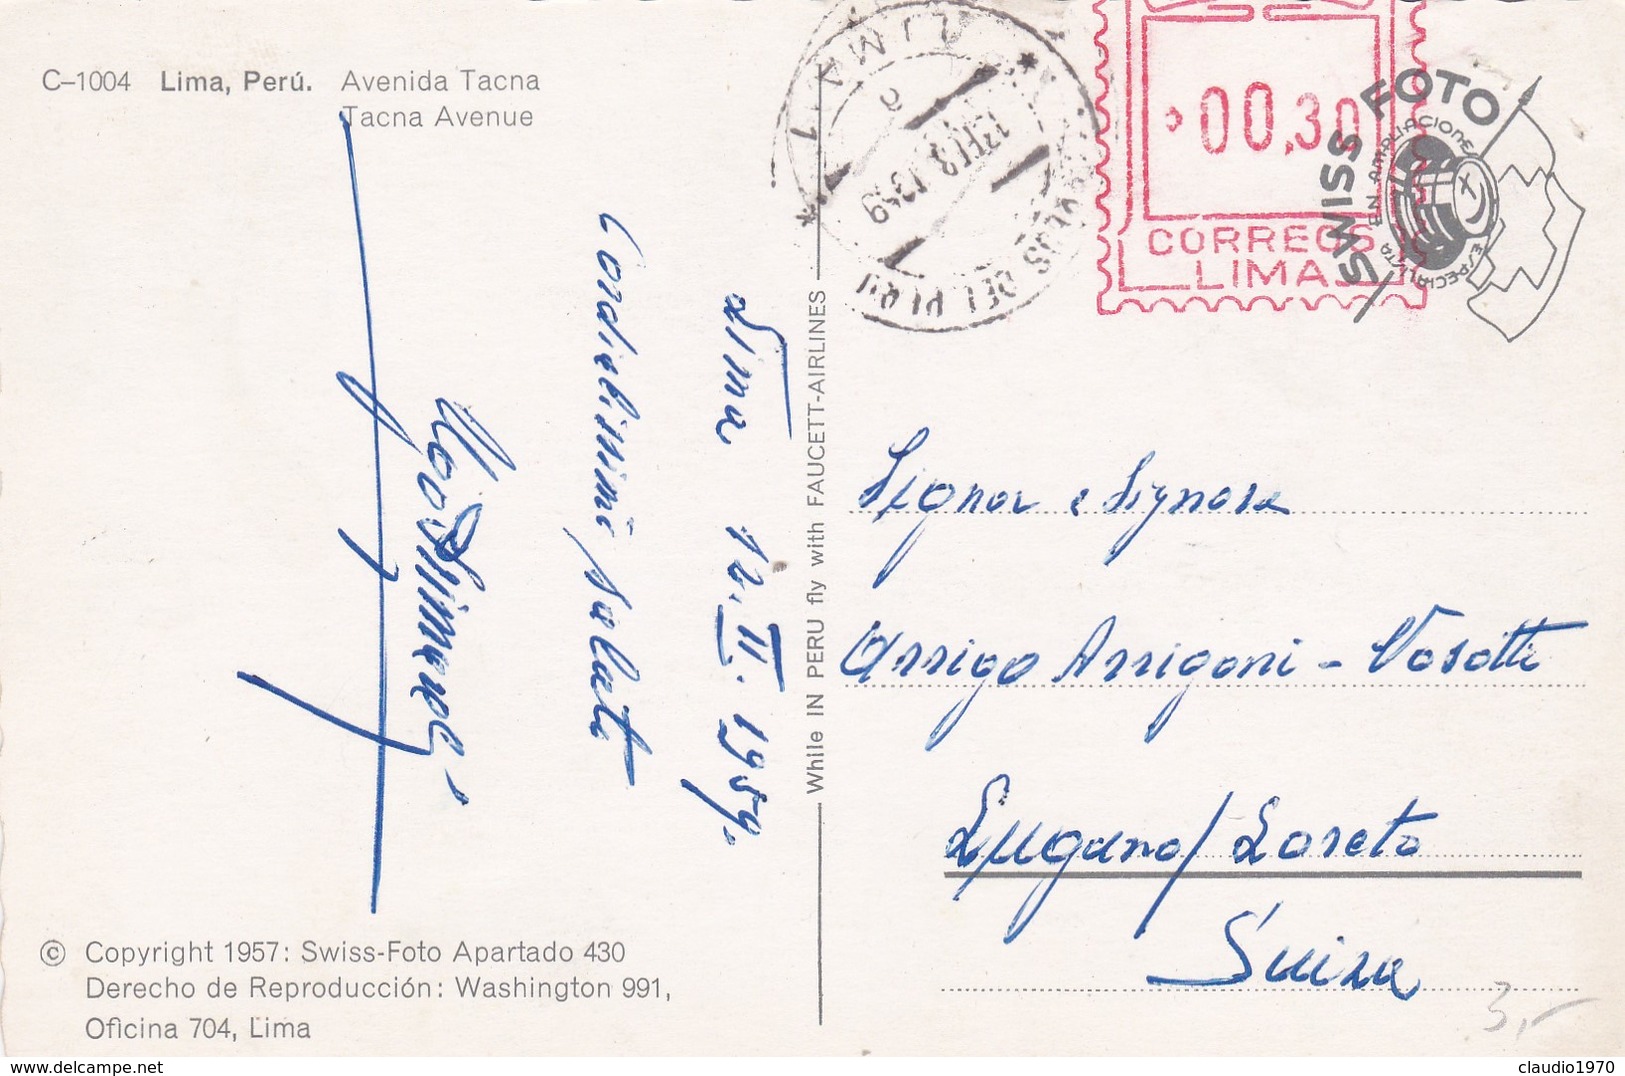 C–1004 Lima, Perú. Avenida Tacna
Tacna Avenue
LIMA 1
13 FEB 1959
CORREOS DEL PERU
00,30
CORREOS
LIMA
SWISS FOTO
ESPECIALISTA EN AMPLIACIONES
Lima 12. II. 1959.
Cordialissimi saluti
While IN PERU fly with FAUCETT-AIRLINES
Signor e Signora
Arrigo Arrigoni - Vosotti
Lugano / Loreto
Suiza
© Copyright 1957: Swiss-Foto Apartado 430
Derecho de Reproducción: Washington 991,
Oficina 704, Lima
3,-
www.delcampe.net
claudio1970